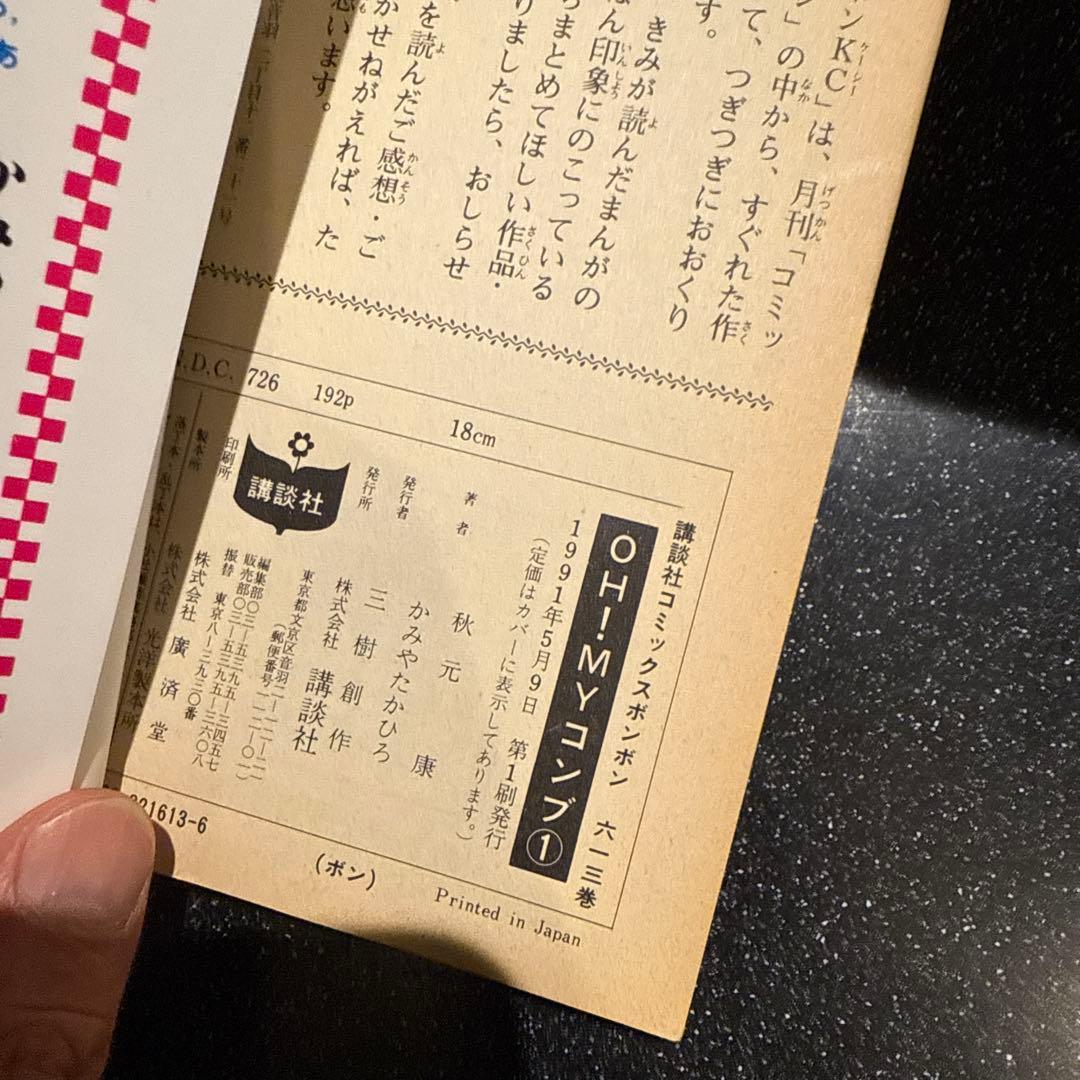 ンKC」は、月刊「コミッ
」の中から、すぐれた作
て、つぎつぎにおおくり
す。
きみが読んだまんがの
ん印象にのこっている
まとめてほしい作品・
りましたら、おしらせ
を読んだご感想・ご
かせねがえれば、た
います。
.D.C. 726 192p 18cm
講談社コミックスボンボン 六一三巻
OH!MYコンブ①
1991年5月9日 第1刷発行
(定価はカバーに表示してあります。)
著者 秋元 康
かみやたかひろ
発行者 三樹 創作
発行所 株式会社 講談社
東京都文京区音羽二―一二―二一
(郵便番号一一二―〇一)
編集部〇三―五三九五―三四五七
販売部〇三―五三九五―三六〇八
振替 東京八―三九三〇番
講談社
印刷所 株式会社 廣済堂
製本所 株式会社 光洋製本所
落丁本・乱丁本は、小
21613-6
(ボン)
Printed in Japan